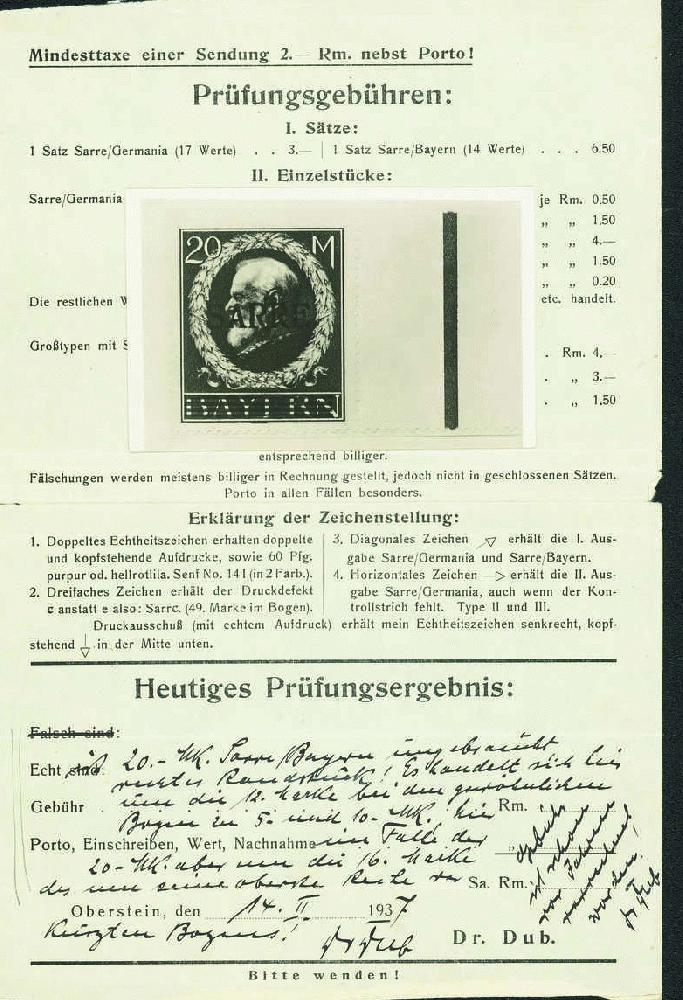 Mindesttaxe einer Sendung 2.— Rm. nebst Porto!
Prüfungsgebühren:
I. Sätze:
1 Satz Sarre/Germania (17 Werte) . . 3.— | 1 Satz Sarre/Bayern (14 Werte) . . . 6.50
II. Einzelstücke:
Sarre/Germania je Rm. 0.50
„ „ 1.50
„ „ 4.—
„ „ 1.50
„ „ 0.20
Die restlichen W etc. handelt.
Großtypen mit S . Rm. 4.—
. „ 3.—
. „ 1.50
20 M
SARRE
BAYERN
entsprechend billiger.
Fälschungen werden meistens billiger in Rechnung gestellt, jedoch nicht in geschlossenen Sätzen.
Porto in allen Fällen besonders.
Erklärung der Zeichenstellung:
1. Doppeltes Echtheitszeichen erhalten doppelte
und kopfstehende Aufdrucke, sowie 60 Pfg.
purpur od. hellrotlila. Senf No. 141 (in 2 Farb.).
2. Dreifaches Zeichen erhält der Druckdefekt
c anstatt e also: Sarrc. (49. Marke im Bogen).
3. Diagonales Zeichen erhält die I. Aus-
gabe Sarre/Germania und Sarre/Bayern.
4. Horizontales Zeichen —> erhält die II. Aus-
gabe Sarre/Germania, auch wenn der Kon-
trollstrich fehlt. Type II und III.
Druckausschuß (mit echtem Aufdruck) erhält mein Echtheitszeichen senkrecht, kopf-
stehend in der Mitte unten.
Heutiges Prüfungsergebnis:
Falsch sind:
Echt sind ist 20.- Mk. Sarre/Bayern ungebraucht
rechtes Randstück! Es handelt sich hier
Gebühr . um die 12. Marke bei den gewöhnlichen Rm.
Bogen zu 5.- und 10.- Mk. hier
Porto, Einschreiben, Wert, Nachnahme im Falle der „
20-Mk. aber um die 16. Marke
des um seine oberste Reihe ver Sa. Rm.
Oberstein, den 14. II 1937
kürzten Bogens! Dr Dub Dr. Dub.
Gebühr
ist schon
vor Jahren
verrechnet
worden.
Dr Dub
Bitte wenden!